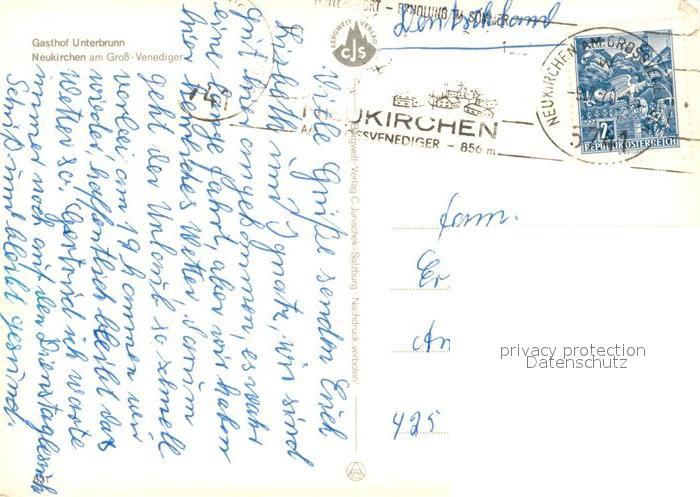 Gasthof Unterbrunn
Neukirchen am Groß-Venediger
ERHOLUNG IM SOMMER
Deutschland
BERGWELT VERLAG
CJS
NEUKIRCHEN AM GROSSVEN
5741
NEUKIRCHEN
AM GROSSVENEDIGER - 856 m
2 S
REPUBLIK ÖSTERREICH
Bergwelt Verlag C. Jurischek · Salzburg · Nachdruck verboten!
Viele Grüße senden Euch
und Ignatz, wir sind
gut hier angekommen, es wahr
eine lange Fahrt, aber wir haben
hier herrliches Wetter. Darum
geht der Urlaub so schnell
vorbei am 19 kommen wir
wieder, hoffentlich bleibt das
Wetter so. Gertrud ich warte
immer noch auf den
Schrieb und bleibt gesund.
Fam.
Er
An
425
privacy protection
Datenschutz